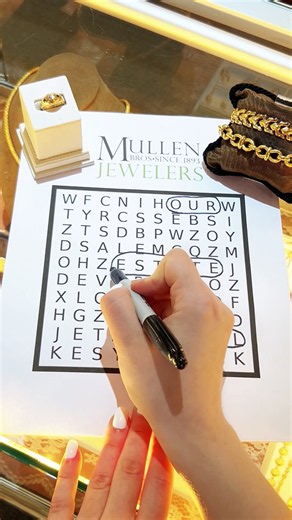 MULLEN
BROS•SINCE 1893
JEWELERS
W F C N I H O U R W
T Y R C S S E B S I
Z T S D B P W Z O Y
D S A L E M S O Z M
O H Z E S T A T E J
D E V
X L
H G Z
J E T
K E S Y K